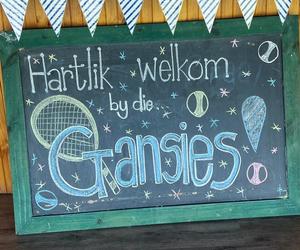 Hartlik welkom
by die...
Gansies